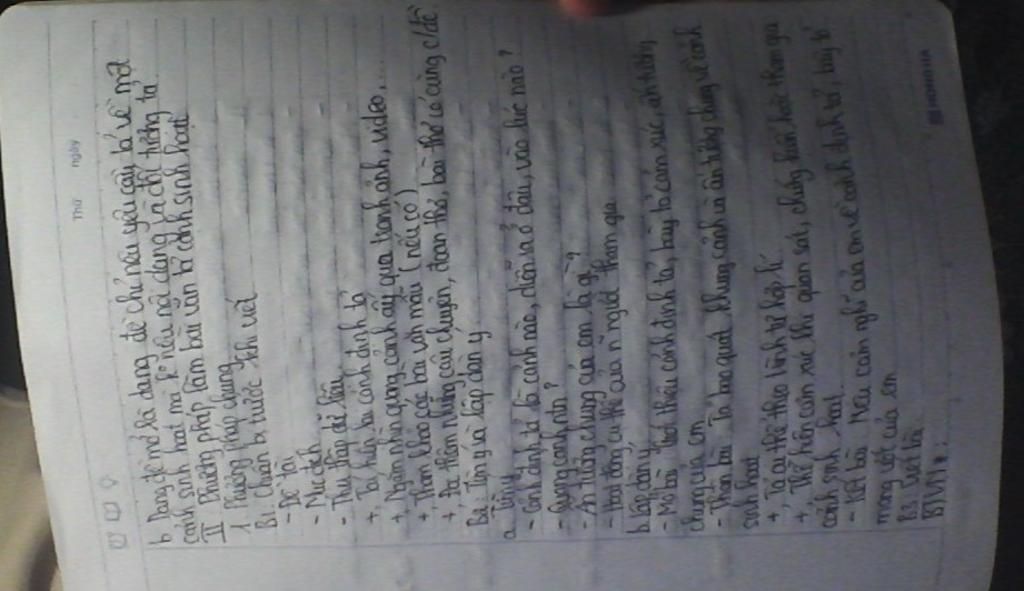 Thứ ngày
b Dạng đề mở là dạng đề chỉ nêu yêu cầu tả về một
cảnh sinh hoạt mà k nêu nội dung và chỉ tiếng tả
II Phương pháp làm bài văn tả cảnh sinh hoạt
1 Phương pháp chung
B1: Chuẩn bị trước khi viết
- Đề tài
- Mục đích
- Thu thập dữ liệu
+, Tái hiện lại cảnh định tả
+, Ngắm nhìn quang cảnh ấy qua tranh ảnh, video,...
+, Tham khảo các bài văn mẫu (nếu có)
+, Đọc thêm những câu chuyện, đoạn thơ, bài thơ có cùng c/đề
B2: Tìm ý và lập dàn ý
a Tìm ý
- Cảnh định tả là cảnh nào, diễn ra ở đâu, vào lúc nào?
- Quang cảnh ntn?
- Ấn tượng chung của em là gì?
- Hoạt động cụ thể của n người tham gia
b Lập dàn ý
- Mở bài giới thiệu cảnh định tả, bày tỏ cảm xúc, ấn tượng
chung của em
- Thân bài Tả bao quát khung cảnh và ấn tượng chung về cảnh
sinh hoạt
+, Tả cụ thể theo trình tự hợp lí
+, Thể hiện cảm xúc khi quan sát, chứng kiến hoặc tham gia
cảnh sinh hoạt
- Kết bài Nêu cảm nghĩ của em về cảnh định tả, bày tỏ
mong ước của em
B3 Viết bài
BTVN:
HONGHA